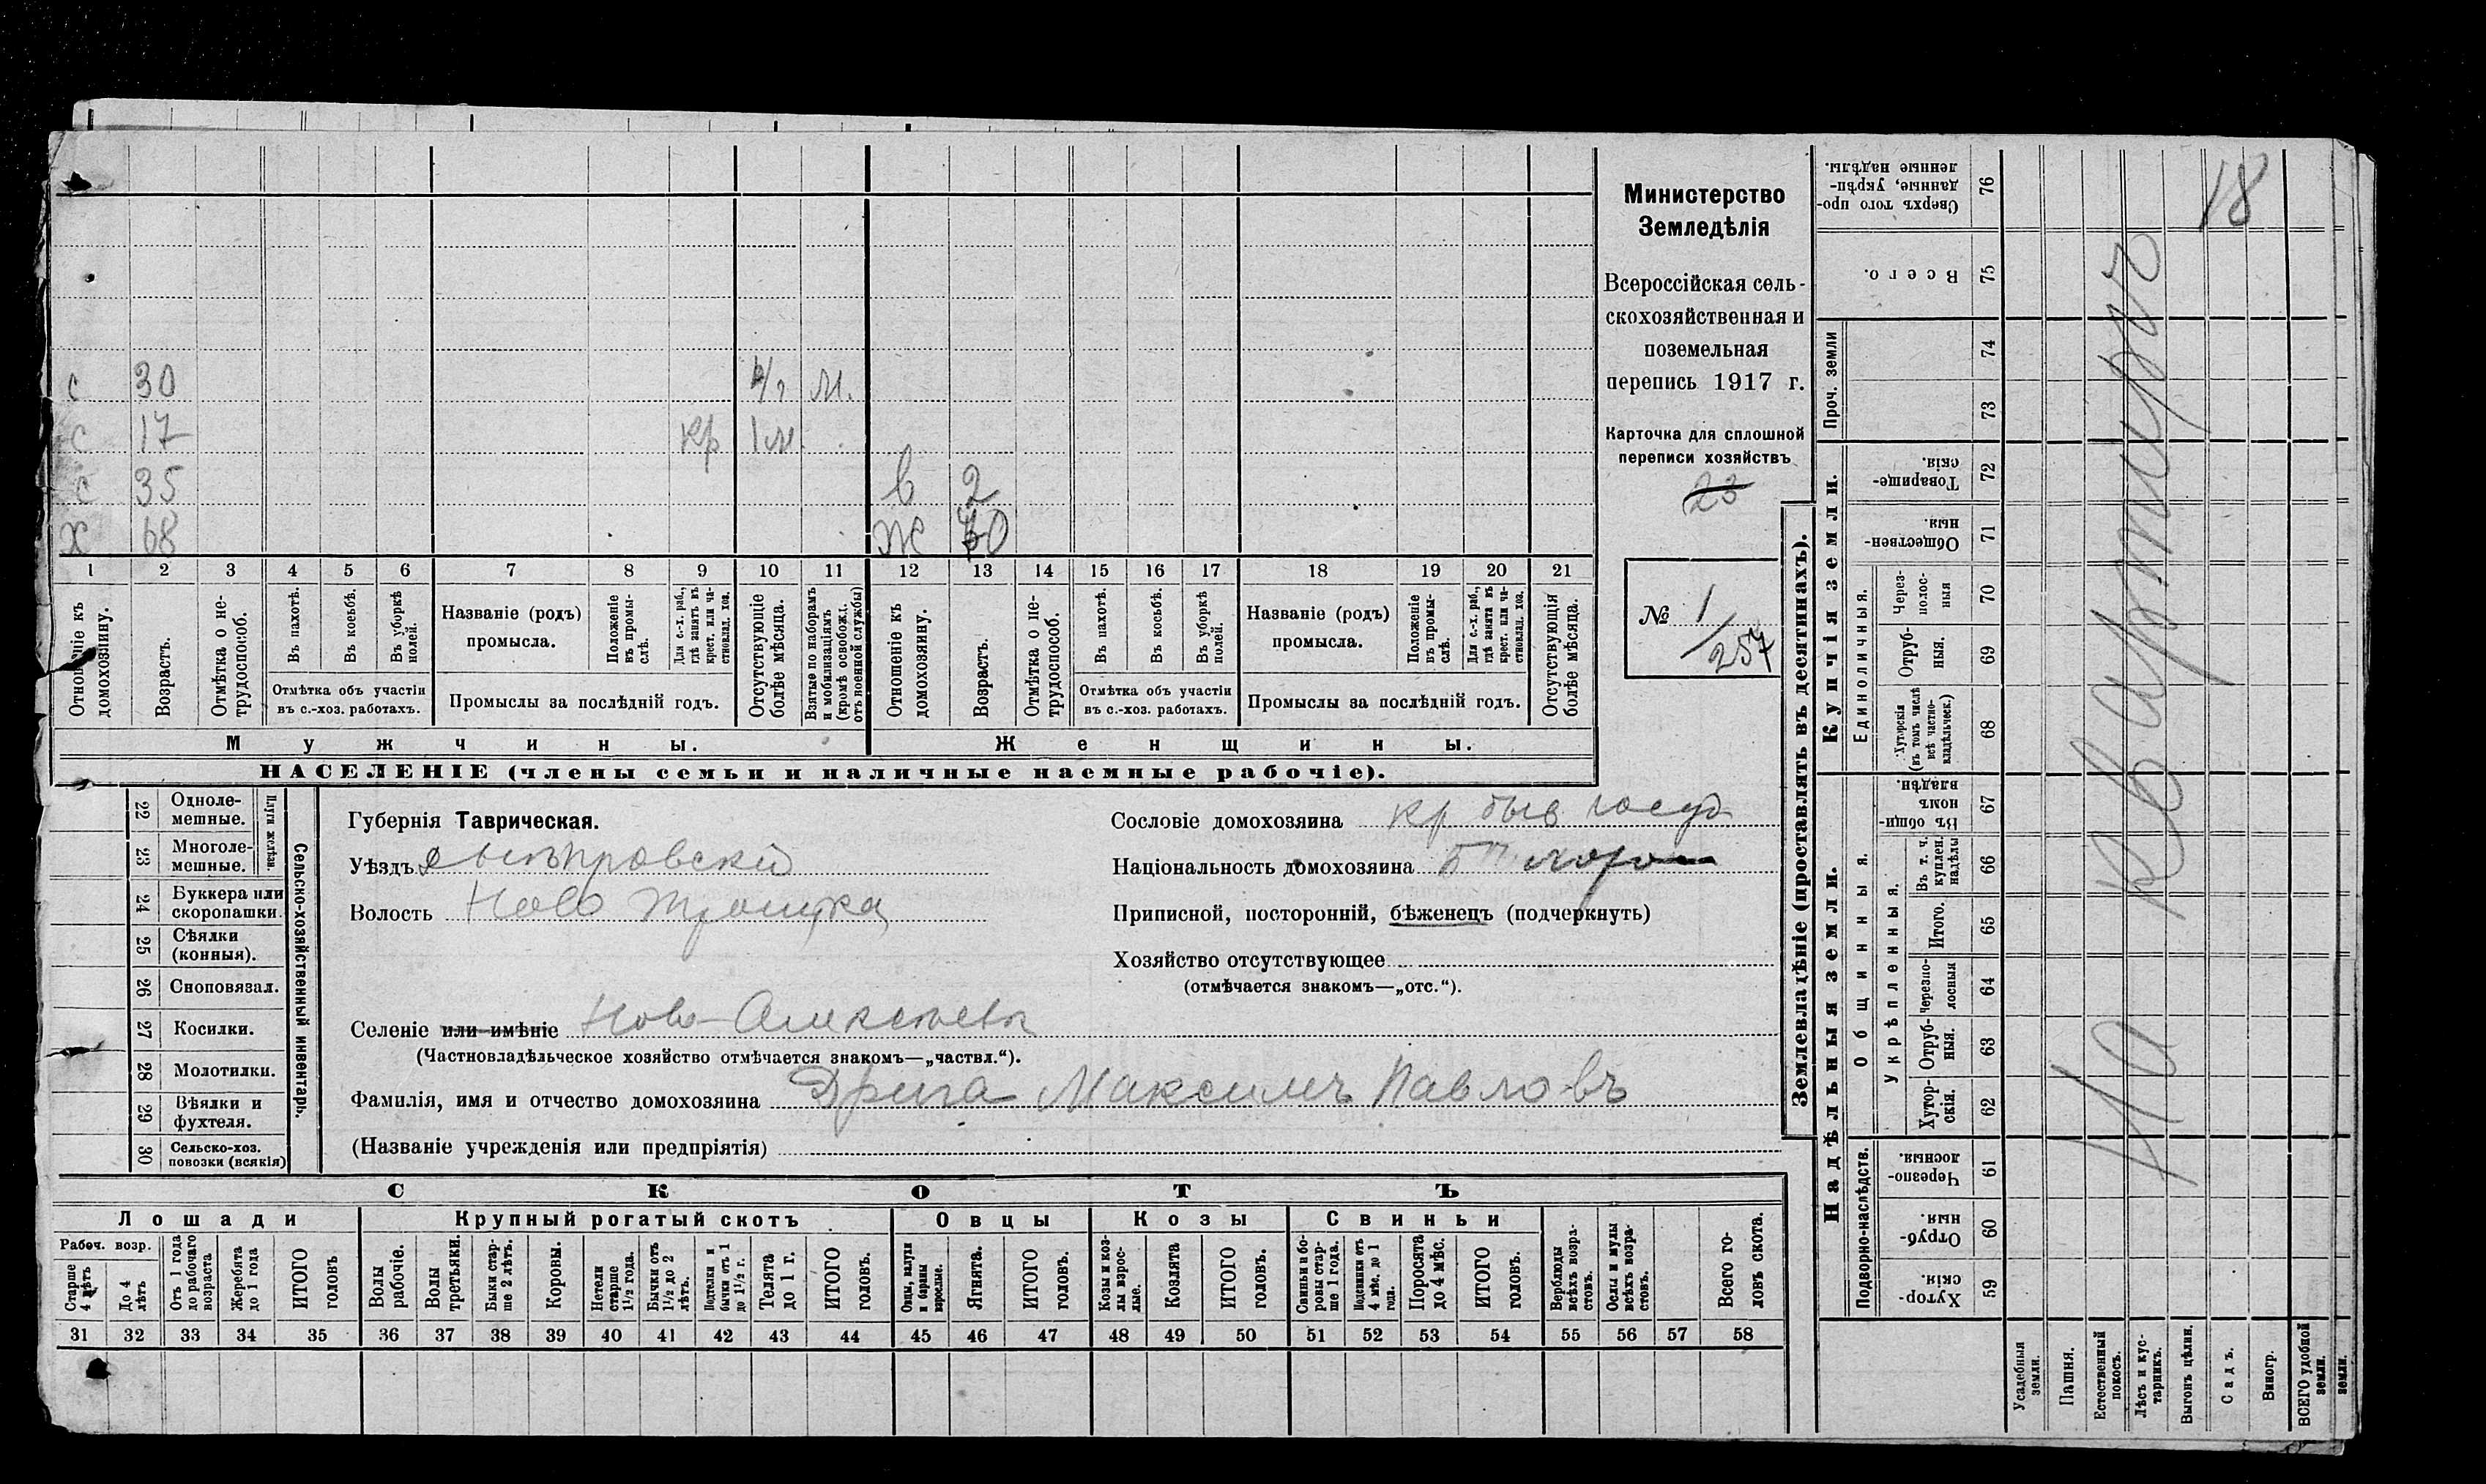 с 30 м.
с 17 кр 1 м.
с 35 в 2
х 68 ж
1 2 3 4 5 6 7 8 9 10 11 12 13 14 15 16 17 18 19 20 21
Отношеніе къ домохозяину.
Возрастъ.
Отмѣтка о не-
трудоспособ.
Въ пахотѣ.
Въ косьбѣ.
Въ уборкѣ
полей.
Отмѣтка объ участіи
въ с.-хоз. работахъ.
Названіе (родъ)
промысла.
Положеніе
въ промы-
слѣ.
Для с.-х. раб.,
гдѣ занятъ въ
крест. или ча-
стновлад. хоз.
Промыслы за послѣдній годъ.
Отсутствующіе
болѣе мѣсяца.
Взятые по наборамъ
и мобилизаціямъ
(кромѣ освобожд.
отъ военной службы)
Отношеніе къ
домохозяину.
Возрастъ.
Отмѣтка о не-
трудоспособ.
Въ пахотѣ.
Въ косьбѣ.
Въ уборкѣ
полей.
Отмѣтка объ участіи
въ с.-хоз. работахъ.
Названіе (родъ)
промысла.
Положеніе
въ промы-
слѣ.
Для с.-х. раб.,
гдѣ занята въ
крест. или ча-
стновлад. хоз.
Промыслы за послѣдній годъ.
Отсутствующія
болѣе мѣсяца.
Мужчины.
Женщины.
НАСЕЛЕНІЕ (члены семьи и наличные наемные рабочіе).
Министерство
Земледѣлія
Всероссійская сель-
скохозяйственная и
поземельная
перепись 1917 г.
Карточка для сплошной
переписи хозяйствъ
23
№ 1/257
22 Одноле-
мешные.
23 Многоле-
мешные.
Плуги желѣзн.
24 Буккера или
скоропашки.
25 Сѣялки
(конныя).
26 Сноповязал.
27 Косилки.
28 Молотилки.
29 Вѣялки и
фухтеля.
30 Сельско-хоз.
повозки (всякія)
Сельско-хозяйственный инвентарь.
Губернія Таврическая.
Уѣздъ Днѣпровскій
Волость Ново Троицкая
Селеніе или имѣніе Ново-Алексѣевк
(Частновладѣльческое хозяйство отмѣчается знакомъ—„частвл.“).
Фамилія, имя и отчество домохозяина Дрига Максимъ Павловъ
(Названіе учрежденія или предпріятія)
Сословіе домохозяина кр быв госуд
Національность домохозяина
Приписной, посторонній, бѣженецъ (подчеркнуть)
Хозяйство отсутствующее
(отмѣчается знакомъ—„отс.“).
СКОТЪ
Лошади
Крупный рогатый скотъ
Овцы
Козы
Свиньи
Рабоч. возр.
Старше
4 лѣтъ
До 4
лѣтъ
Отъ 1 года
до рабочаго
возраста
Жеребята
до 1 года
ИТОГО
головъ
Волы
рабочіе.
Волы
третьяки.
Быки стар-
ше 2 лѣтъ.
Коровы.
Нетели
старше
1½ года.
Бычки отъ
1½ до 2
лѣтъ.
Подтелки и
бычки отъ 1
до 1½ г.
Телята
до 1 г.
ИТОГО
головъ.
Овцы, валухи
и бараны
взрослые.
Ягнята.
ИТОГО
головъ.
Козы и коз-
лы взрос-
лые.
Козлята
ИТОГО
головъ.
Свиньи и бо-
ровы стар-
ше 1 года.
Подсвинки отъ
4 мѣс. до 1
года.
Поросята
до 4 мѣс.
ИТОГО
головъ.
Верблюды
всѣхъ возра-
стовъ.
Ослы и мулы
всѣхъ возра-
стовъ.
Всего го-
ловъ скота.
31 32 33 34 35 36 37 38 39 40 41 42 43 44 45 46 47 48 49 50 51 52 53 54 55 56 57 58
Землевладѣніе (проставлять въ десятинахъ).
Надѣльныя земли.
Купчія земли.
Проч. земли
Подворно-наслѣдств.
Общинныя.
Укрѣпленныя.
Единоличныя.
Хутор-
скія. 59
Отруб-
ныя. 60
Черезпо-
лосныя. 61
Хутор-
скія. 62
Отруб-
ныя. 63
Черезпо-
лосныя 64
Итого. 65
Въ т. ч.
куплен.
надѣлы 66
Въ общин-
номъ
владѣн. 67
Хуторскія
(въ томъ числѣ
всѣ частно-
владѣльческ.) 68
Отруб-
ныя. 69
Через-
полос-
ныя 70
Обществен-
ныя. 71
Товарище-
скія. 72
73
74
Всего. 75
Сверхъ того про-
данные, укрѣп-
ленные надѣлы. 76
Усадебныя
земли.
Пашня.
Естественный
покосъ.
Лѣсъ и кус-
тарникъ.
Выгонъ цѣлин.
Садъ.
Виногр.
ВСЕГО удобной
земли.
земли.
На квартирѣ
18